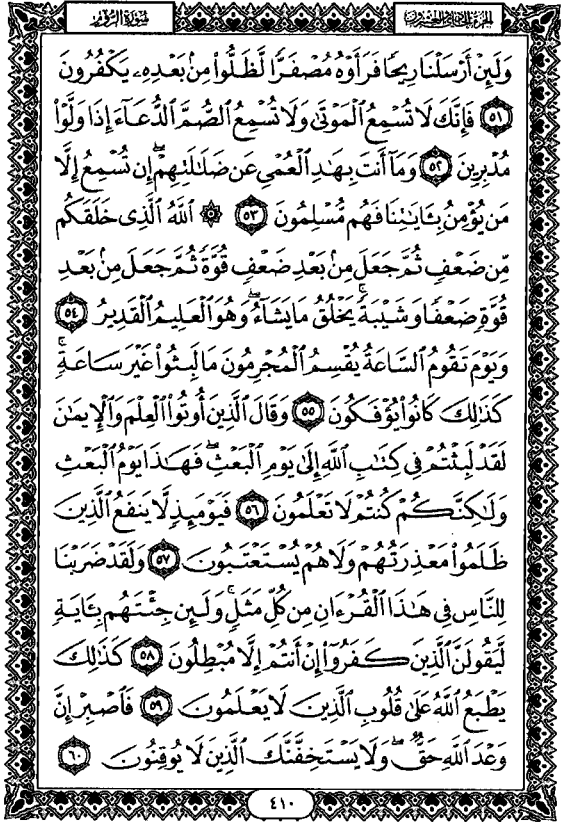 الجزء الحادي والعشرون سورة الروم
وَلَئِنْ أَرْسَلْنَا رِيحًا فَرَأَوْهُ مُصْفَرًّا لَّظَلُّوا۟ مِنۢ بَعْدِهِۦ يَكْفُرُونَ
﴿٥١﴾ فَإِنَّكَ لَا تُسْمِعُ ٱلْمَوْتَىٰ وَلَا تُسْمِعُ ٱلصُّمَّ ٱلدُّعَآءَ إِذَا وَلَّوْا۟
مُدْبِرِينَ ﴿٥٢﴾ وَمَآ أَنتَ بِهَـٰدِ ٱلْعُمْىِ عَن ضَلَـٰلَتِهِمْ ۖ إِن تُسْمِعُ إِلَّا
مَن يُؤْمِنُ بِـَٔايَـٰتِنَا فَهُم مُّسْلِمُونَ ﴿٥٣﴾ ۞ ٱللَّهُ ٱلَّذِى خَلَقَكُم
مِّن ضَعْفٍ ثُمَّ جَعَلَ مِنۢ بَعْدِ ضَعْفٍ قُوَّةً ثُمَّ جَعَلَ مِنۢ بَعْدِ
قُوَّةٍ ضَعْفًا وَشَيْبَةً ۚ يَخْلُقُ مَا يَشَآءُ ۖ وَهُوَ ٱلْعَلِيمُ ٱلْقَدِيرُ ﴿٥٤﴾
وَيَوْمَ تَقُومُ ٱلسَّاعَةُ يُقْسِمُ ٱلْمُجْرِمُونَ مَا لَبِثُوا۟ غَيْرَ سَاعَةٍ ۚ
كَذَٰلِكَ كَانُوا۟ يُؤْفَكُونَ ﴿٥٥﴾ وَقَالَ ٱلَّذِينَ أُوتُوا۟ ٱلْعِلْمَ وَٱلْإِيمَـٰنَ
لَقَدْ لَبِثْتُمْ فِى كِتَـٰبِ ٱللَّهِ إِلَىٰ يَوْمِ ٱلْبَعْثِ ۖ فَهَـٰذَا يَوْمُ ٱلْبَعْثِ
وَلَـٰكِنَّكُمْ كُنتُمْ لَا تَعْلَمُونَ ﴿٥٦﴾ فَيَوْمَئِذٍ لَّا يَنفَعُ ٱلَّذِينَ
ظَلَمُوا۟ مَعْذِرَتُهُمْ وَلَا هُمْ يُسْتَعْتَبُونَ ﴿٥٧﴾ وَلَقَدْ ضَرَبْنَا
لِلنَّاسِ فِى هَـٰذَا ٱلْقُرْءَانِ مِن كُلِّ مَثَلٍ ۚ وَلَئِن جِئْتَهُم بِـَٔايَةٍ
لَّيَقُولَنَّ ٱلَّذِينَ كَفَرُوٓا۟ إِنْ أَنتُمْ إِلَّا مُبْطِلُونَ ﴿٥٨﴾ كَذَٰلِكَ
يَطْبَعُ ٱللَّهُ عَلَىٰ قُلُوبِ ٱلَّذِينَ لَا يَعْلَمُونَ ﴿٥٩﴾ فَٱصْبِرْ إِنَّ
وَعْدَ ٱللَّهِ حَقٌّ ۖ وَلَا يَسْتَخِفَّنَّكَ ٱلَّذِينَ لَا يُوقِنُونَ ﴿٦٠﴾
٤١٠